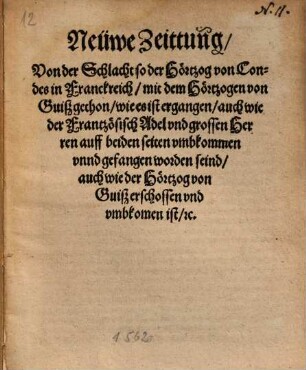 12
N. 11.
Neüwe Zeittung/
Von der Schlacht so der Hörtzog von Con-
des in Franckreich/ mit dem Hörtzogen von
Guiß gethon/ wie es ist ergangen/ auch wie
der Frantzösisch Adel vnd grossen Her
ren auff beiden seiten vmbkommen
vnnd gefangen worden seind/
auch wie der Hörtzog von
Guiß erschossen vnd
vmbkomen ist/ ꝛc.
1562